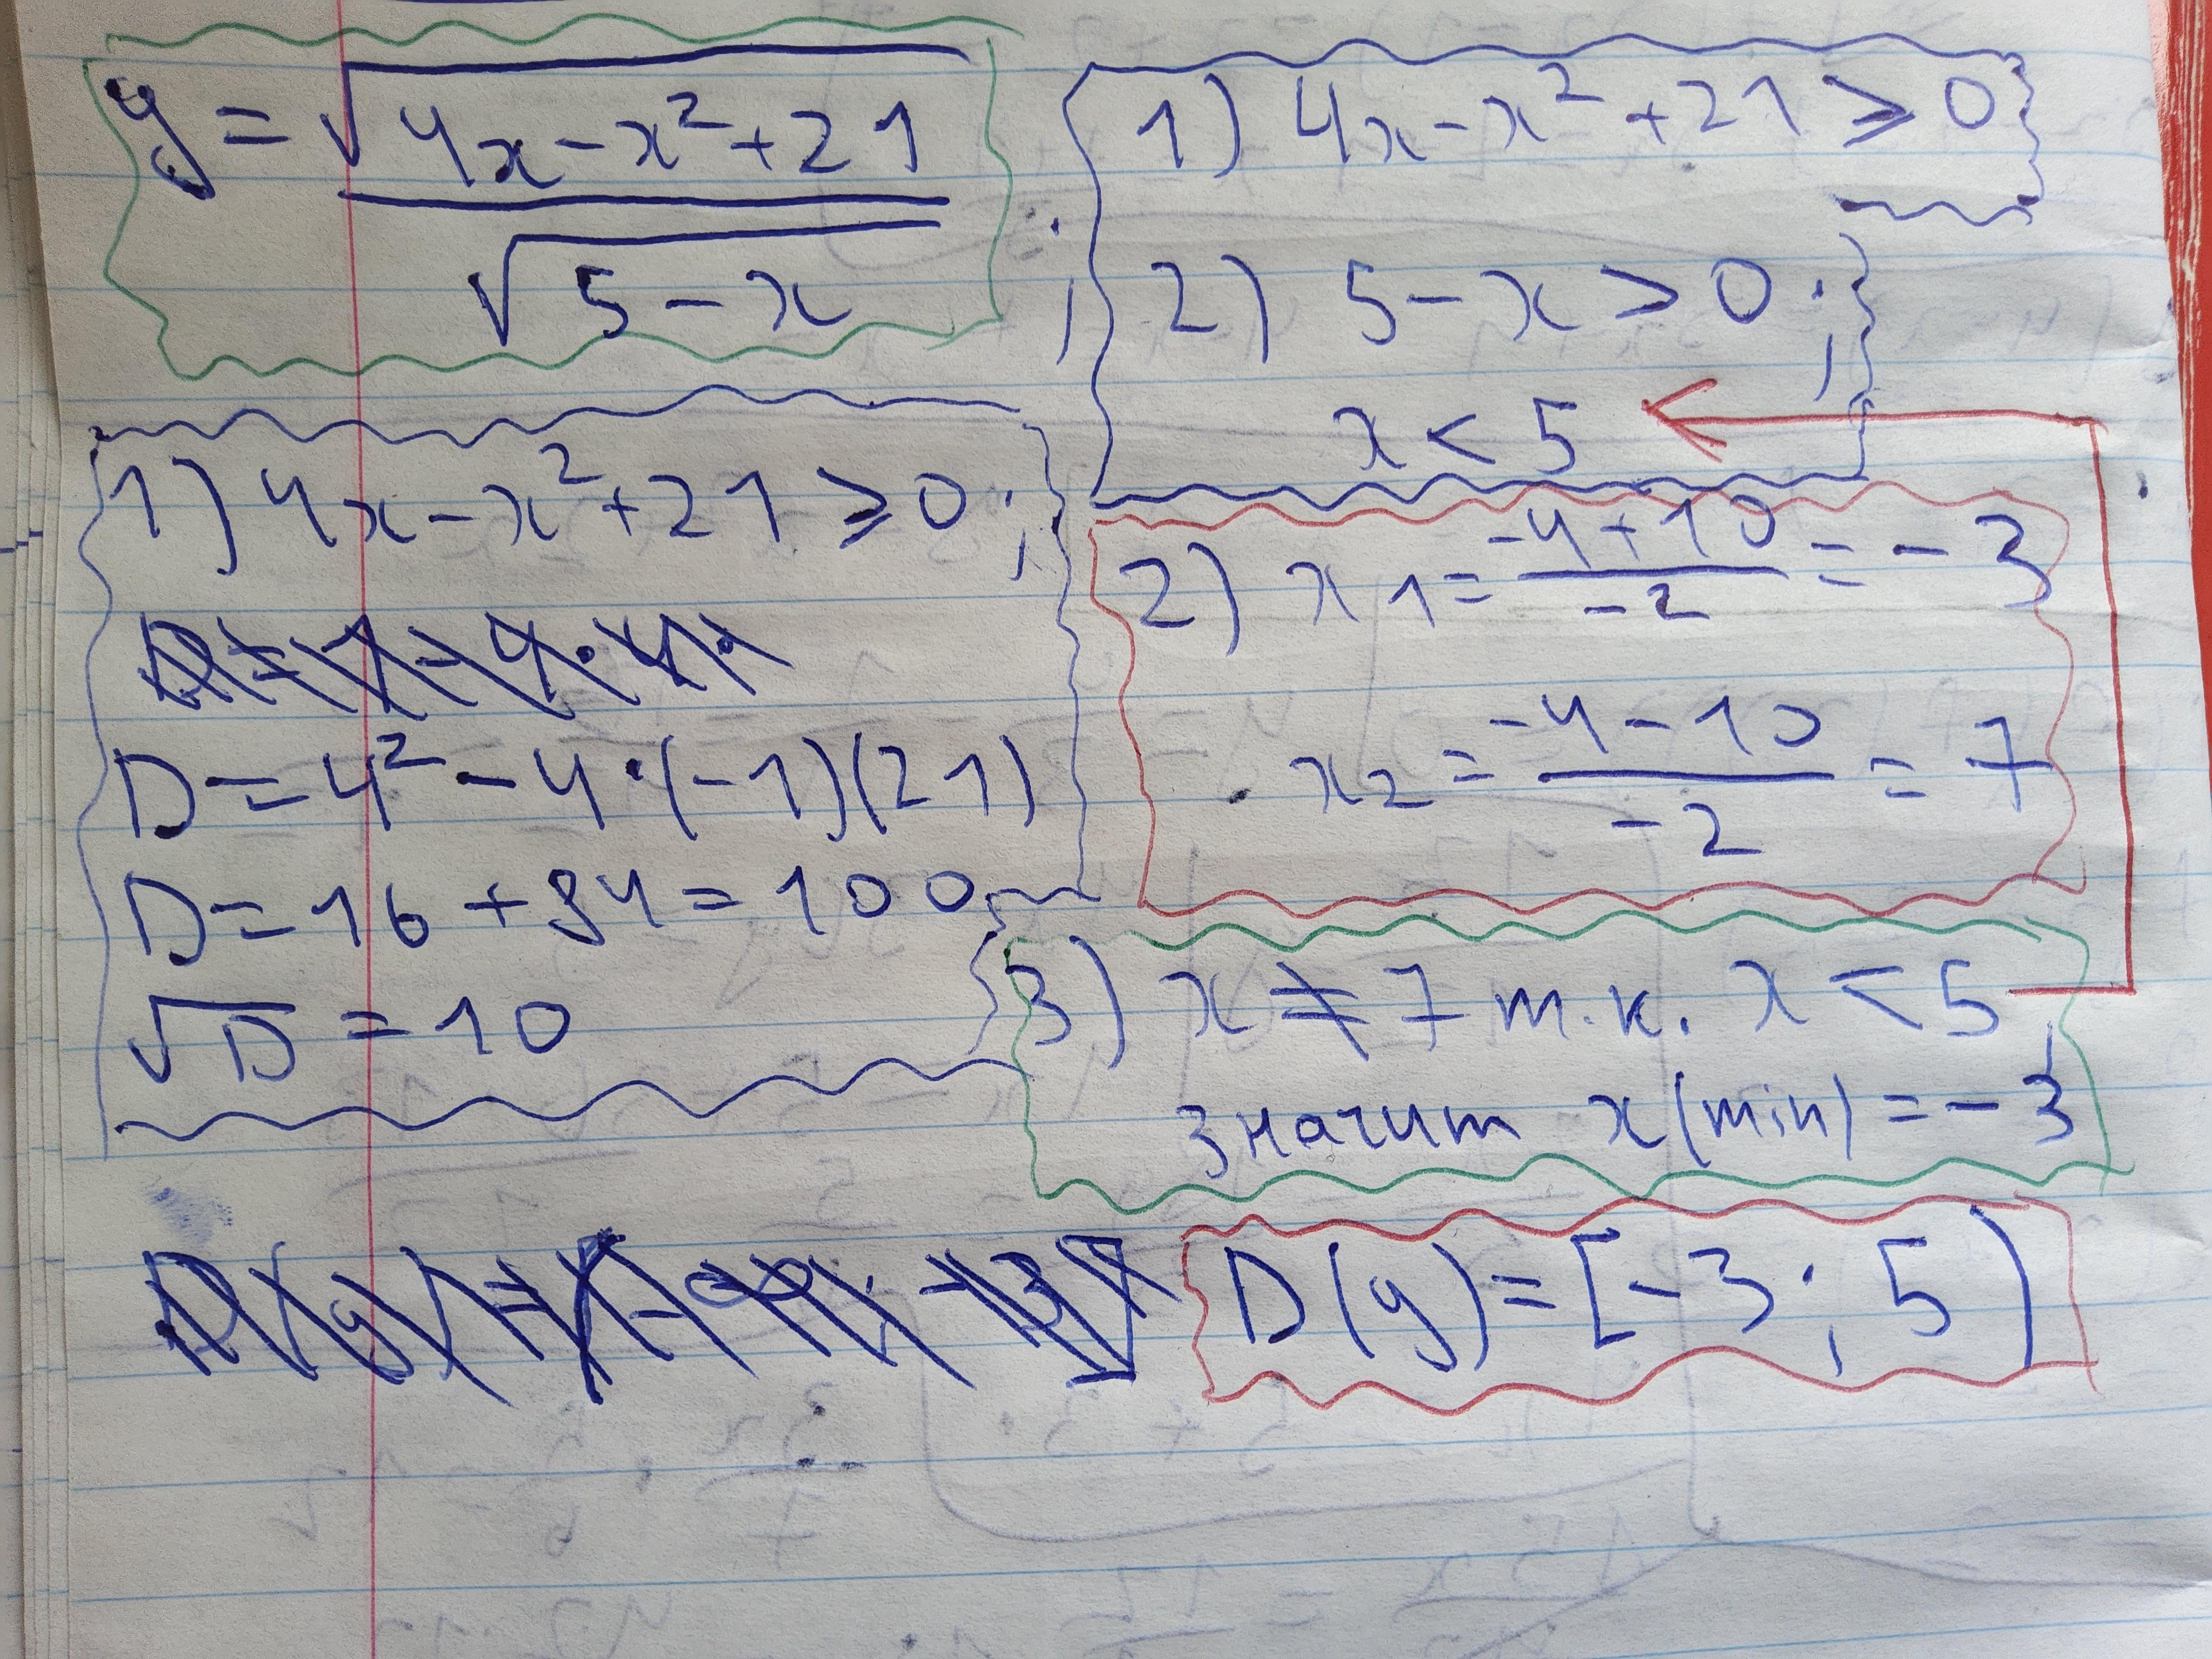 y = √(4x - x² + 21) / √(5 - x) ;
1) 4x - x² + 21 ≥ 0
2) 5 - x > 0 ;
x < 5
1) 4x - x² + 21 ≥ 0 ;
D = 4² - 4 · (-1)(21)
D = 16 + 84 = 100
√D = 10
2) x1 = (-4 + 10) / -2 = -3
x2 = (-4 - 10) / -2 = 7
3) x ≠ 7 т.к. x < 5,
значит x(min) = -3
D(y) = [-3 ; 5)